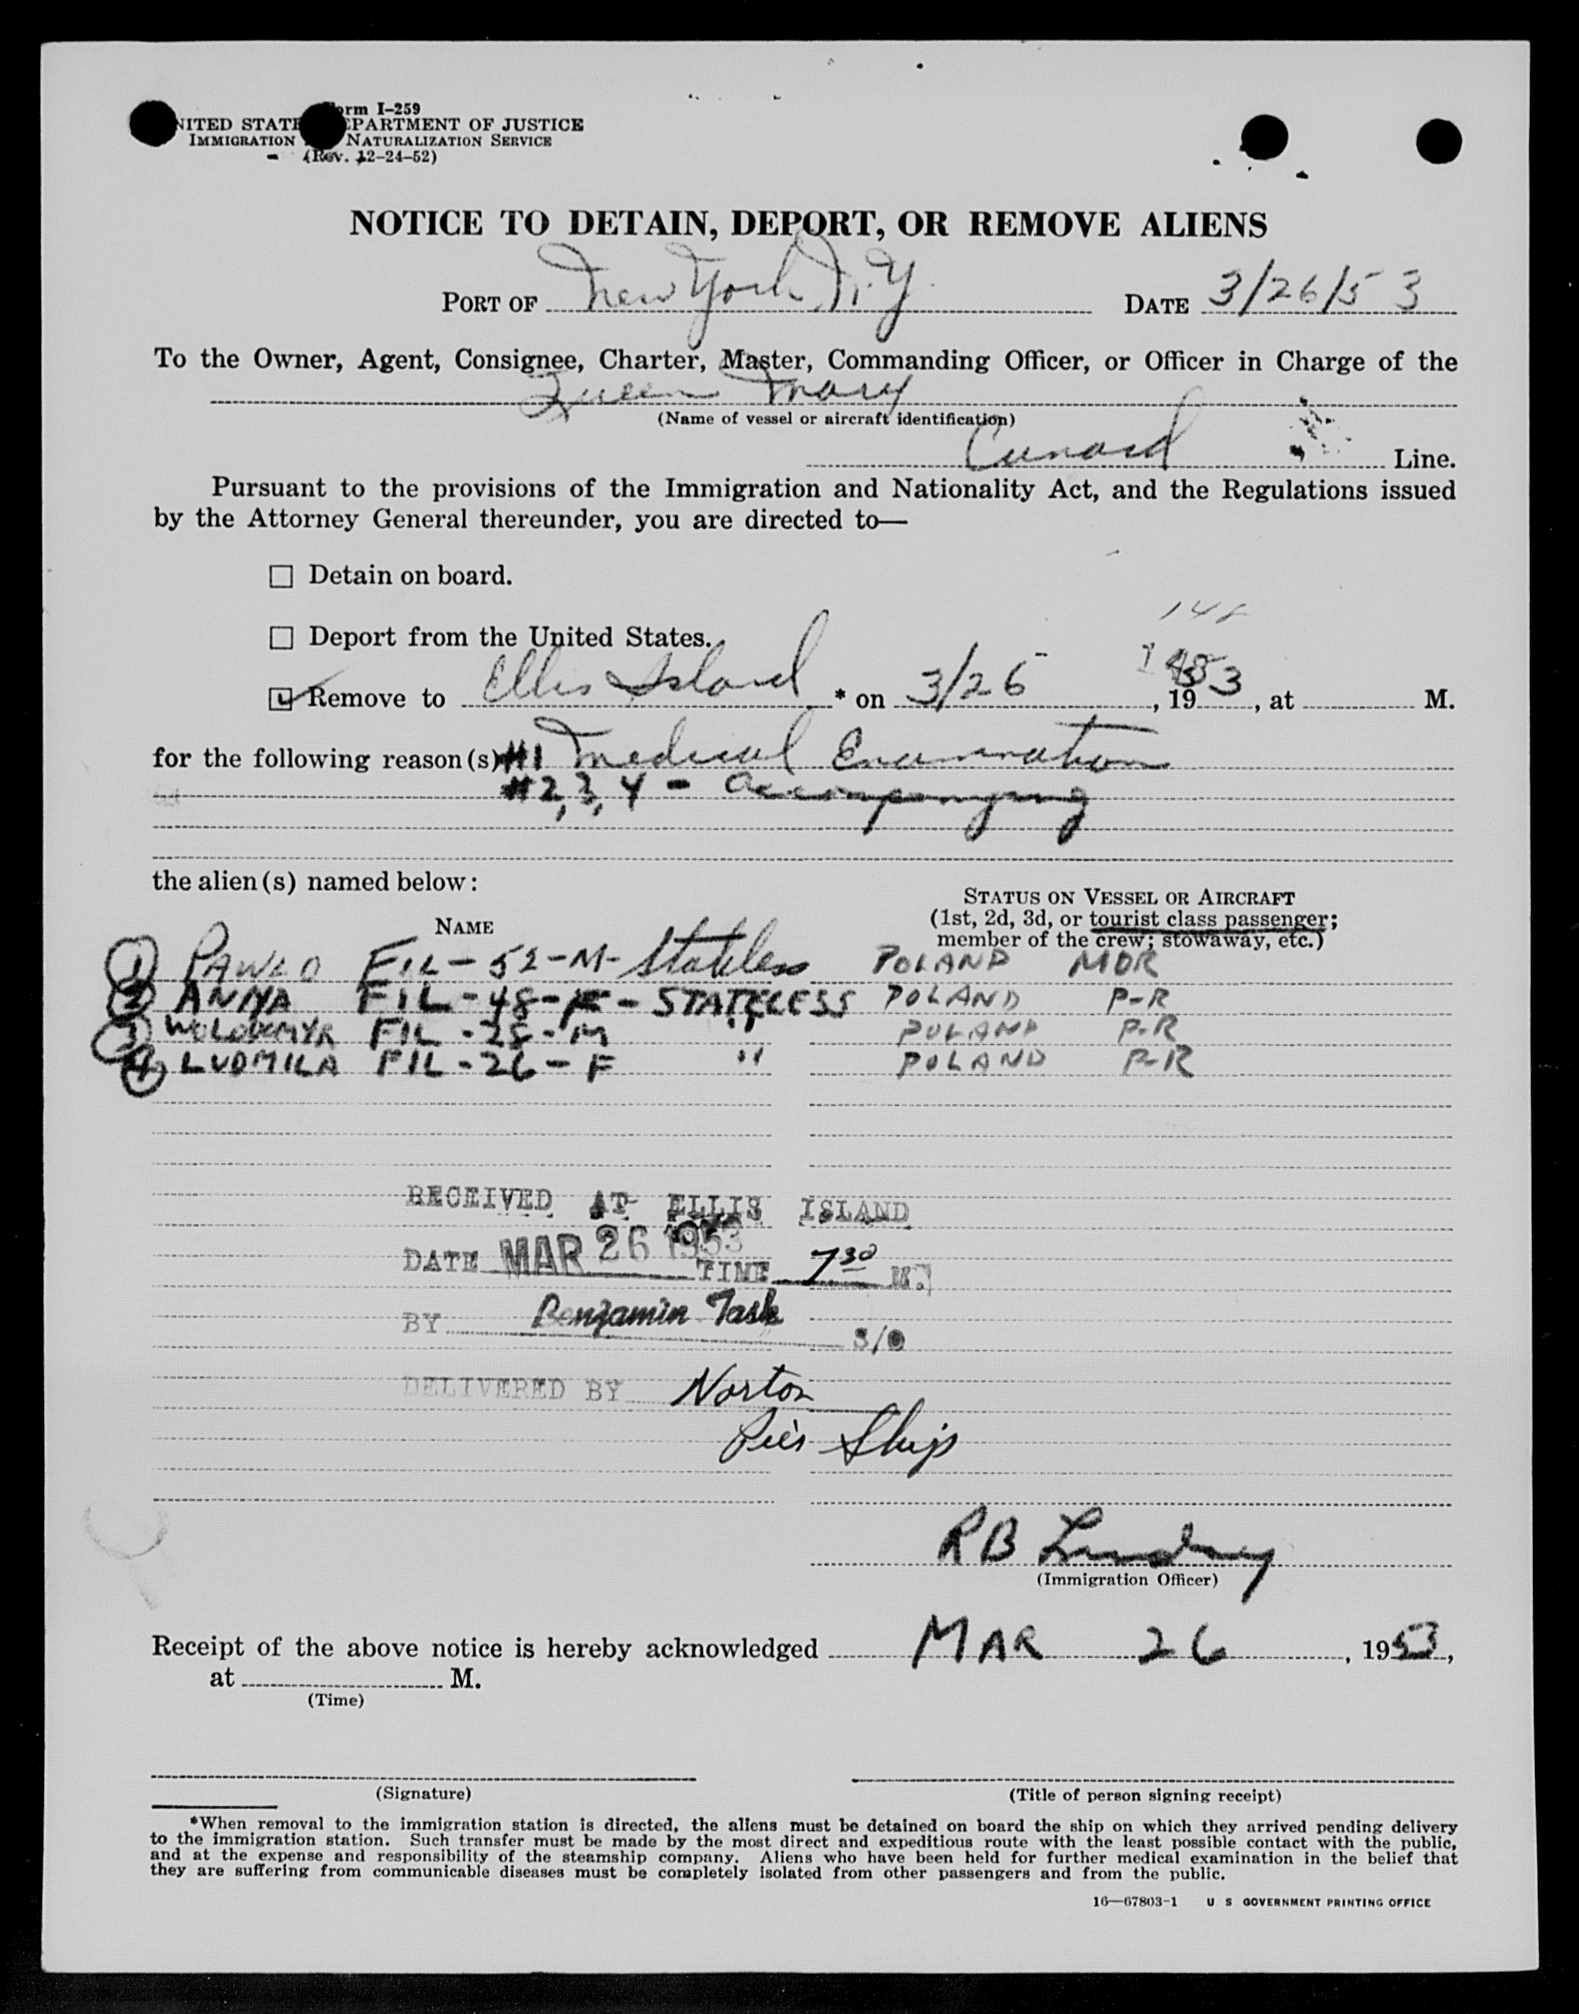 Form I-259
UNITED STATES DEPARTMENT OF JUSTICE
IMMIGRATION NATURALIZATION SERVICE
(Rev. 12-24-52)
NOTICE TO DETAIN, DEPORT, OR REMOVE ALIENS
PORT OF New York, N.Y. DATE 3/26/53
To the Owner, Agent, Consignee, Charter, Master, Commanding Officer, or Officer in Charge of the
Queen Mary
(Name of vessel or aircraft identification)
Cunard Line.
Pursuant to the provisions of the Immigration and Nationality Act, and the Regulations issued
by the Attorney General thereunder, you are directed to—
☐ Detain on board.
148
☐ Deport from the United States.
☑ Remove to Ellis Island * on 3/26, 1953, at M.
for the following reason(s) #1 Medical Examination
#2, 3, 4 - Accompanying
the alien(s) named below:
STATUS ON VESSEL OR AIRCRAFT
NAME (1st, 2d, 3d, or tourist class passenger;
member of the crew; stowaway, etc.)
① PAWLO FIL - 52 - M - Stateless POLAND MDR
② ANNA FIL - 48 - F - STATELESS POLAND P-R
③ WOLODEMYR FIL - 28 - M " POLAND P-R
④ LUDMILA FIL - 26 - F " POLAND P-R
RECEIVED AT ELLIS ISLAND
DATE MAR 26 1953 TIME 7 30 M.
BY Benjamin Task S/O
DELIVERED BY Norton
Pier Ships
RB Lindsey
(Immigration Officer)
Receipt of the above notice is hereby acknowledged MAR 26, 1953,
at M.
(Time)
(Signature) (Title of person signing receipt)
*When removal to the immigration station is directed, the aliens must be detained on board the ship on which they arrived pending delivery
to the immigration station. Such transfer must be made by the most direct and expeditious route with the least possible contact with the public,
and at the expense and responsibility of the steamship company. Aliens who have been held for further medical examination in the belief that
they are suffering from communicable diseases must be completely isolated from other passengers and from the public.
16—67803-1 U S GOVERNMENT PRINTING OFFICE